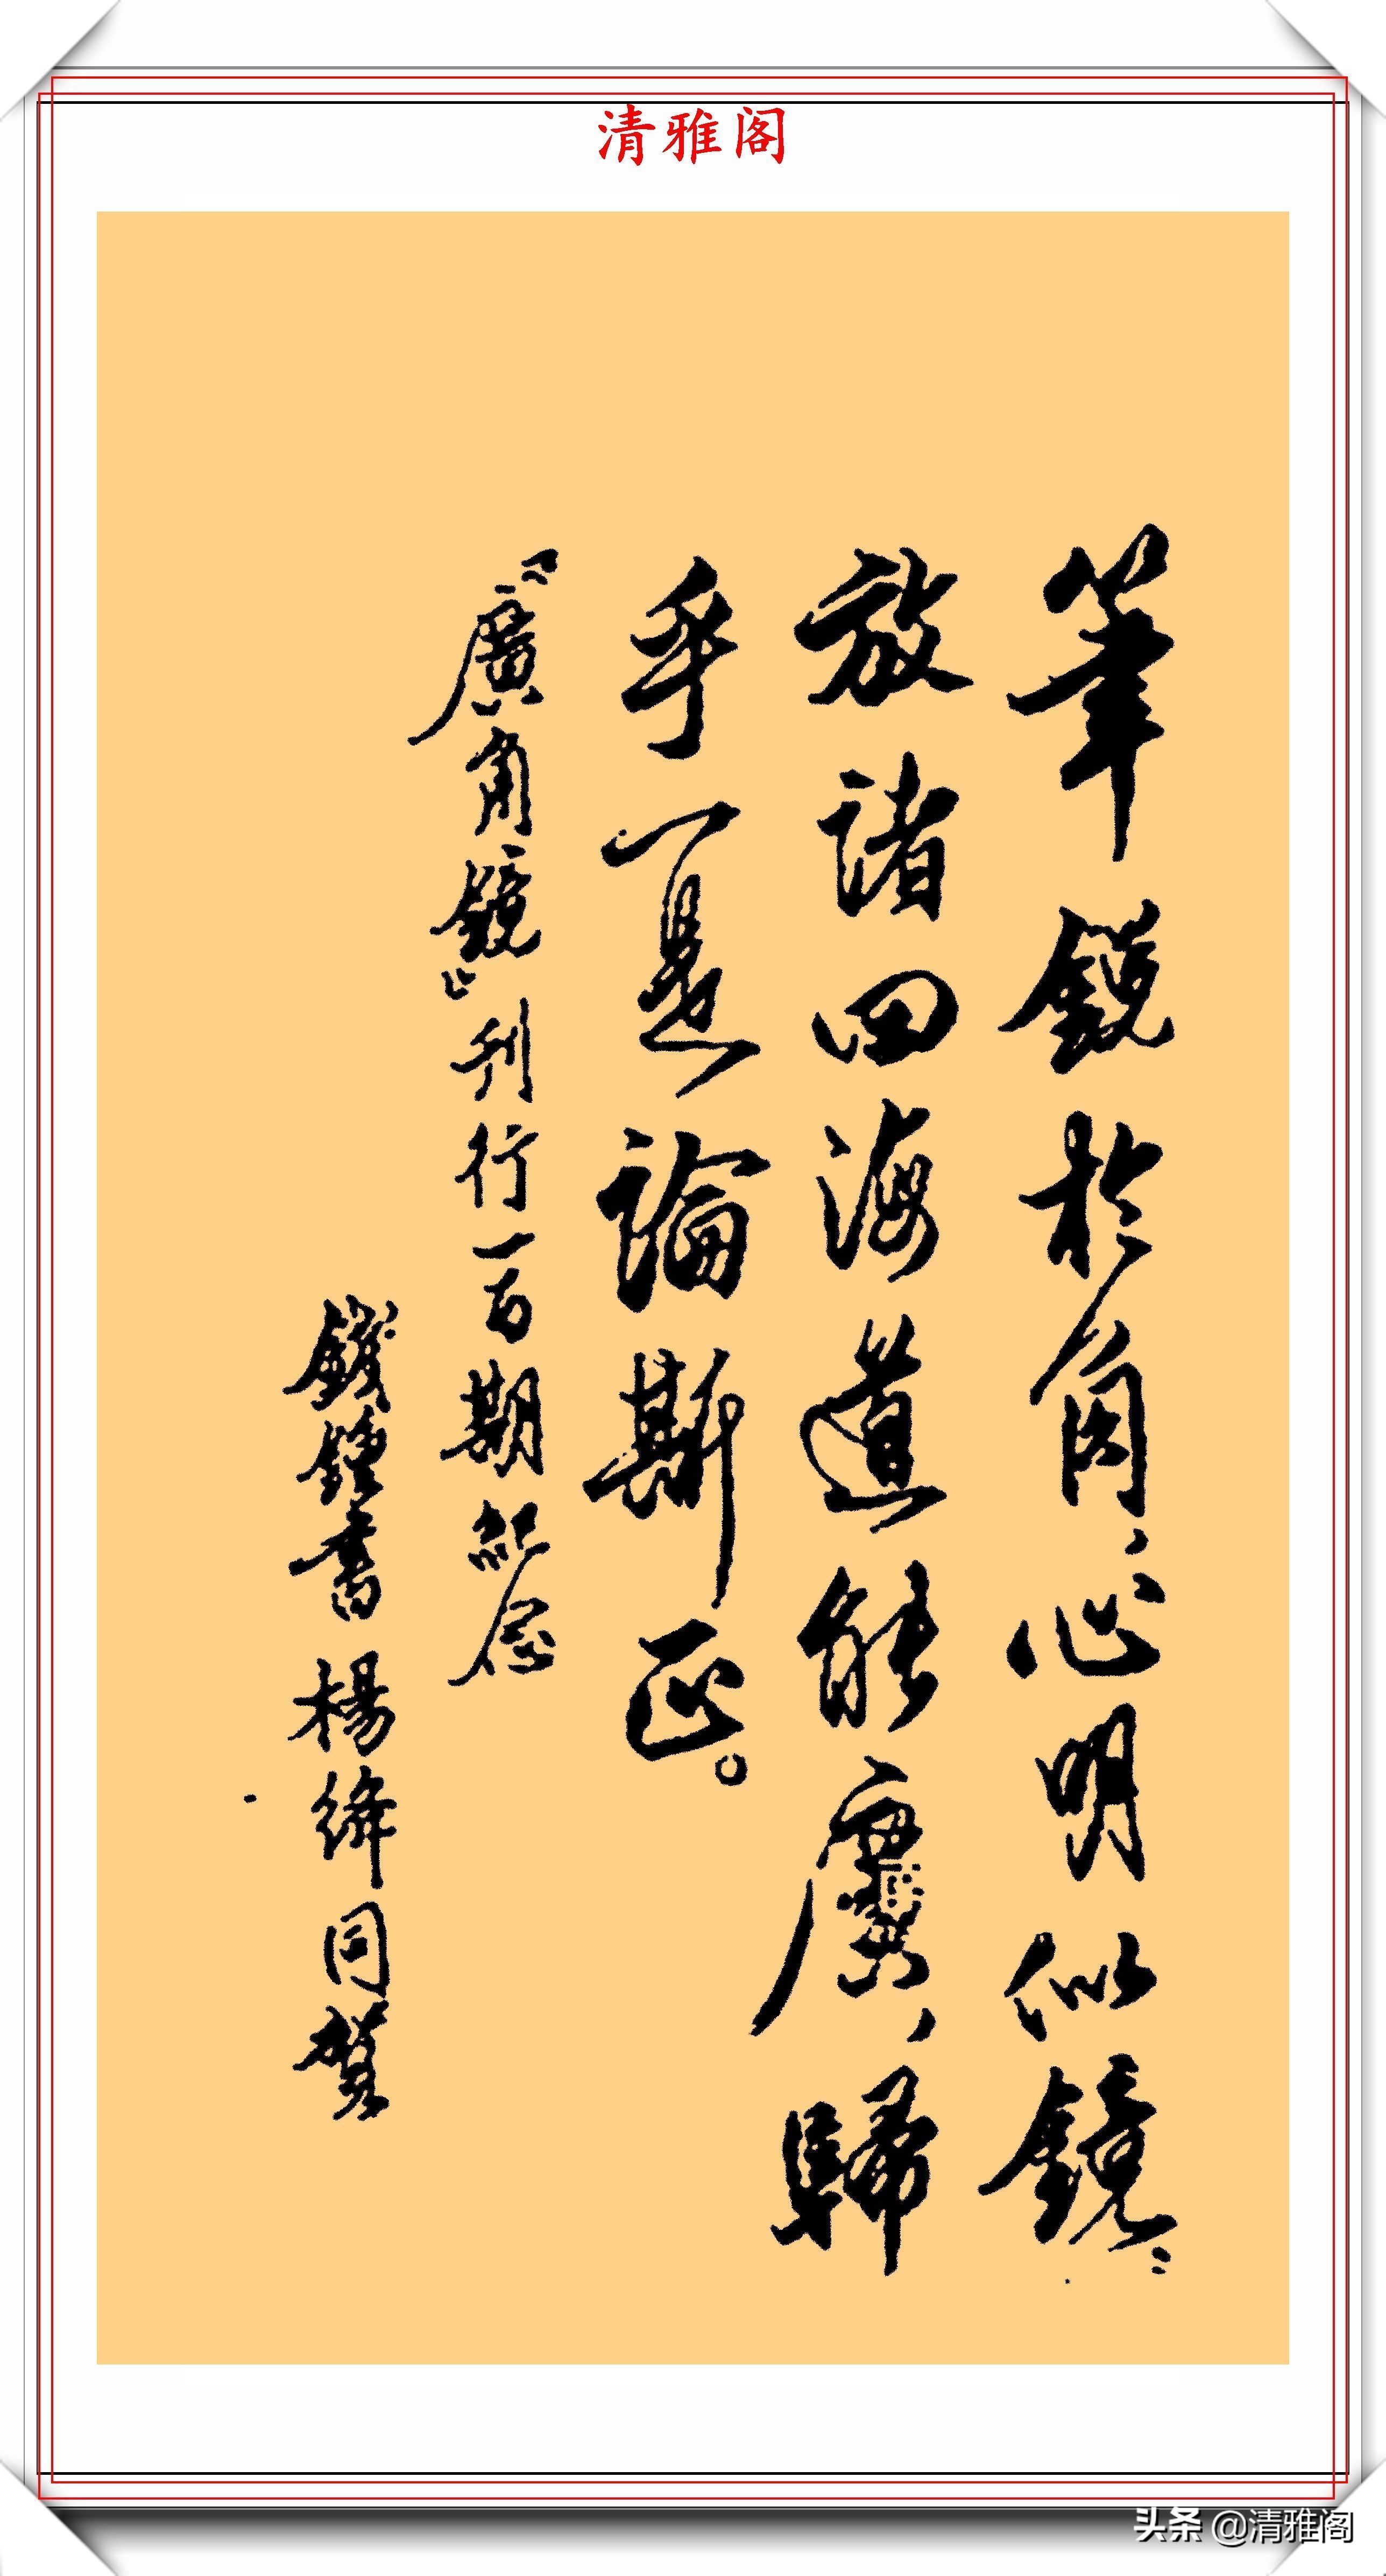 清雅阁
筆鋭於角，心明似鏡；
放諸四海道能廣，歸
乎一是論斯正。
『廣角鏡』刊行一百期紀念
錢鍾書 楊絳同賀
头条 @清雅阁